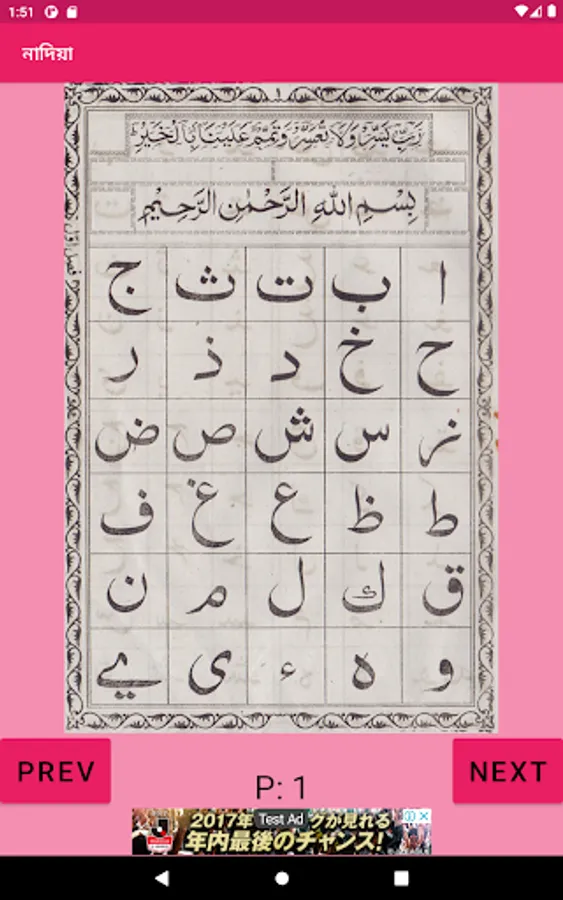 1:51
নাদিয়া
١
رَبِّ يَسِّرْ وَلَا تُعَسِّرْ وَتَمِّمْ عَلَيْنَا بِالْخَيْرِ
بِسْمِ اللّٰهِ الرَّحْمٰنِ الرَّحِيْمِ
ا ب ت ث ج
ح خ د ذ ر
ز س ش ص ض
ط ظ ع غ ف
ق ك ل م ن
و ه ء ى ے
PREV
P: 1
NEXT
2017年 Test Ad クが見れる
年内最後のチャンス!